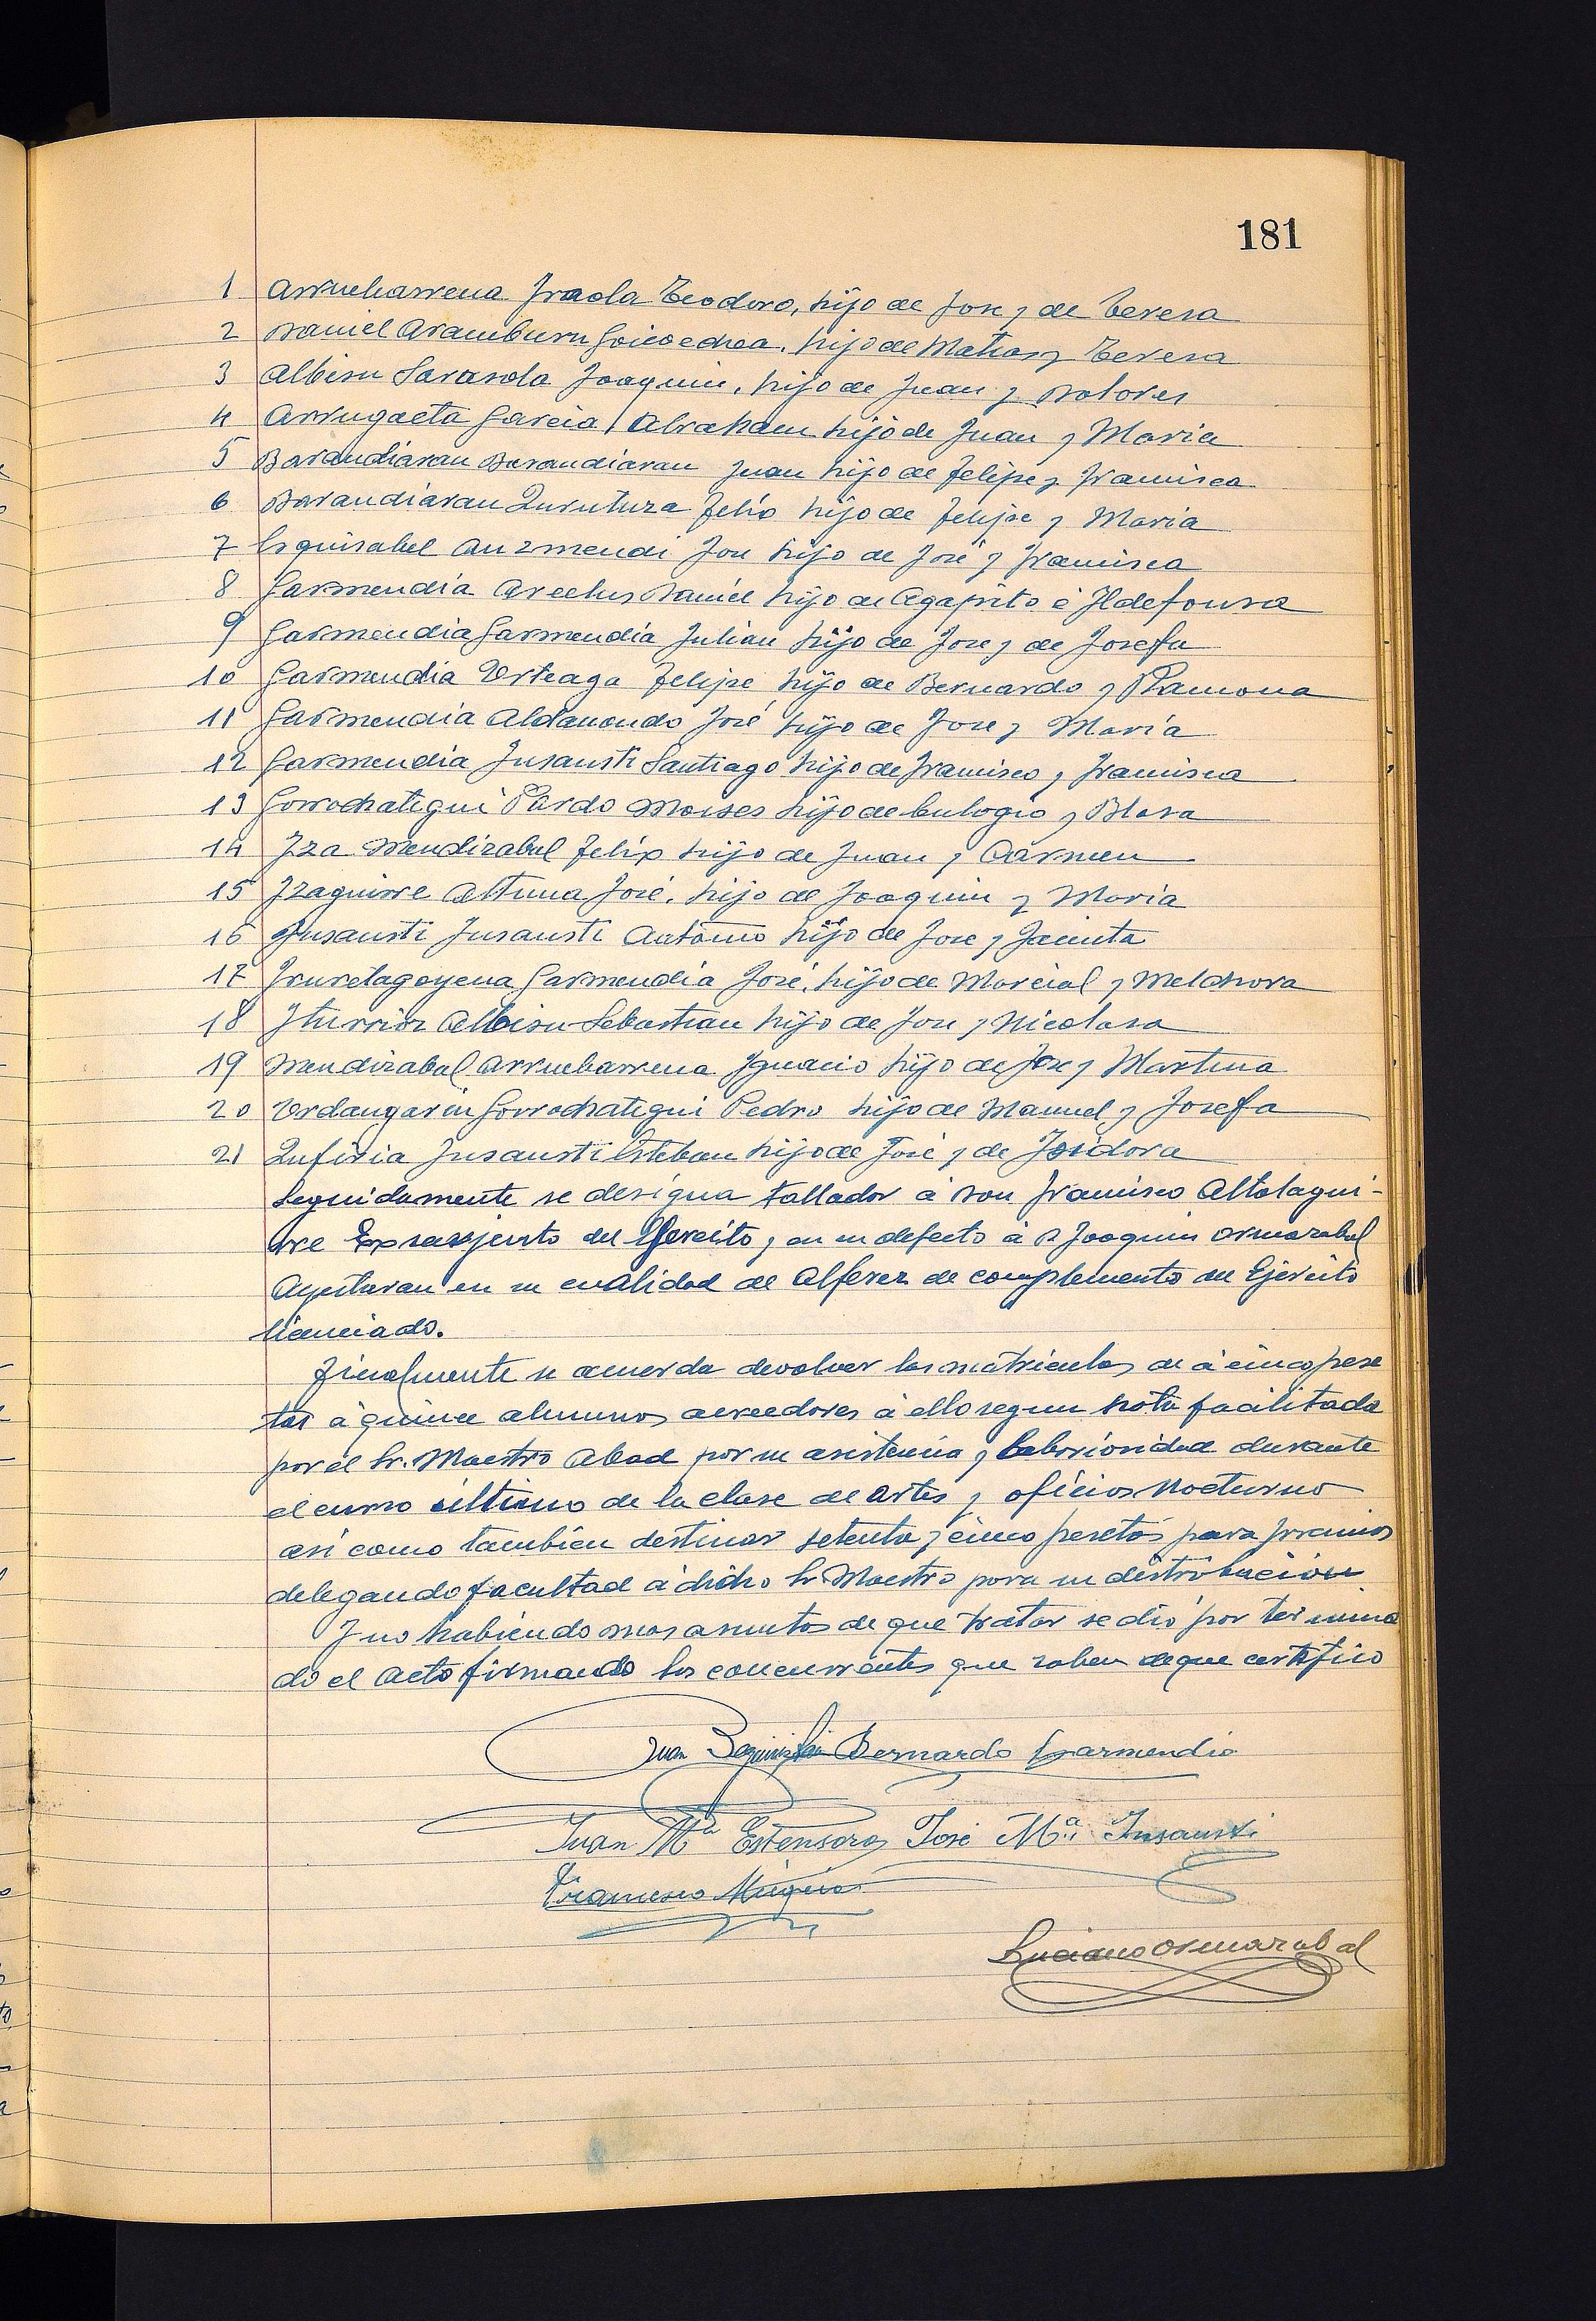 181
1 Arruebarrena Iraola Teodoro, hijo de Jose y de Teresa
2 Daniel Aramburu Goicoechea, hijo de Matias y Teresa
3 Albisu Sarasola Joaquin, hijo de Juan y Dolores
4 Arrugaeta Garcia Abraham hijo de Juan y Maria
5 Barandiaran Barandiaran Juan hijo de Felipe y Francisca
6 Barandiaran Zurutuza Felix hijo de Felipe y Maria
7 Esquisabel Auzmendi Jose hijo de José y Francisca
8 Garmendia Arcelus Daniel hijo de Agapito é Ildefonsa
9 Garmendia Garmendia Julian hijo de Jose y de Josefa
10 Garmendia Urteaga Felipe hijo de Bernardo y Ramona
11 Garmendia Aldanondo José hijo de Jose y María
12 Garmendia Insausti Santiago hijo de Francisco y Francisca
13 Gorrochategui Pardo Moises hijo de Eulogio y Blasa
14 Iza Mendizabal Felix hijo de Juan y Carmen
15 Izaguirre Altuna José, hijo de Joaquin y Maria
16 Insausti Insausti Antonio hijo de Jose y Jacinta
17 Iruretagoyena Garmendia José, hijo de Marcial y Melchora
18 Iturrioz Albisu Sebastian hijo de Jose y Nicolasa
19 Mendizabal Arruebarrena Ignacio hijo de Jose y Martina
20 Urdangarin Gorrochategui Pedro hijo de Manuel y Josefa
21 Zufiria Insausti Esteban hijo de José y de Isidora
Seguidamente se designa tallador á Don Francisco Altolagui-
rre Exsargento del Ejercito, en su defecto á D Joaquin Ormazabal
Ayestaran en su cualidad de Alferez de complemento del Ejercito
licenciado.
Finalmente se acuerda devolver las matriculas de á cinco pese
tas á quince alumnos acreedores á ello segun nota facilitada
por el Sr. Maestro Abad por su asistencia y laboriosidad durante
el curso último de la clase de artes y oficios nocturno
asi como tambien destinar setenta y cinco pesetas para premios
delegando facultad á dicho Sr. Maestro para su distribucion
Y no habiendo mas asuntos de que tratar se dió por termina
do el acto firmando los concurrentes que saben de que certifico
Juan Bernardo Garmendia
Juan Mª Estensoro José Mª Insausti
Francisco
Luciano Ormazabal